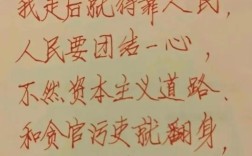 我走后就得靠人民，
人民要团结一心，
不然资本主义道路、
和贪官污吏就翻身，